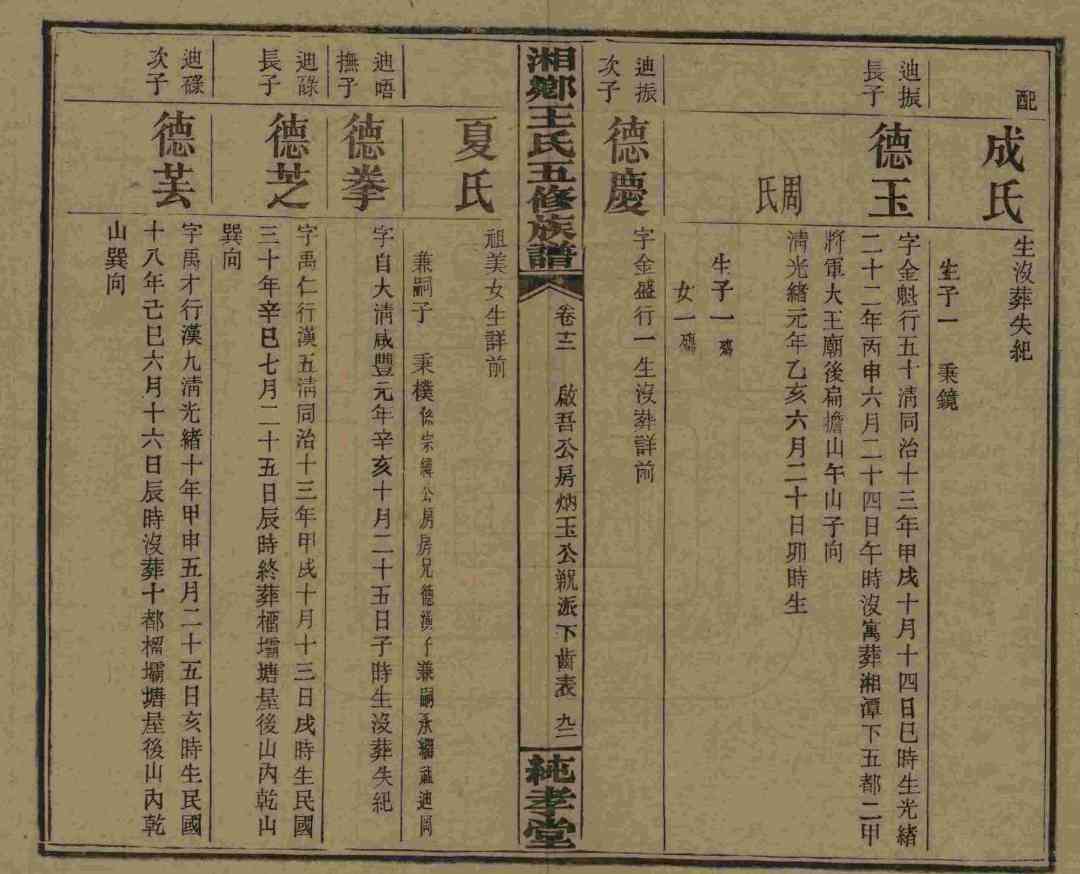 配
成氏
生沒葬失紀
生子一　秉鏡
迪振
長子
德玉
字金魁行五十淸同治十三年甲戌十月十四日巳時生光緒
二十二年丙申六月二十四日午時沒寓葬湘潭下五都二甲
將軍大王廟後扁擔山午山子向
周氏
淸光緒元年乙亥六月二十日卯時生
生子一殤
女一殤
迪振
次子
德慶
字金盛行一生沒葬詳前
湘鄉王氏五修族譜
卷十二
啟吾公房炳玉公親派下齒表
九二
純孝堂
夏氏
祖美女生詳前
兼嗣子　秉樸係宗緯公房房兄德漢子兼嗣承繼迪岡
迪晤
撫子
德拳
字自大淸咸豐元年辛亥十月二十五日子時生沒葬失紀
迪碌
長子
德芝
字禹仁行漢五淸同治十三年甲戌十月十三日戌時生民國
三十年辛巳七月二十五日辰時終葬橊壩塘屋後山內乾山
巽向
迪碌
次子
德芸
字禹才行漢九淸光緒十年甲申五月二十五日亥時生民國
十八年己巳六月十六日辰時沒葬十都橊壩塘屋後山內乾
山巽向